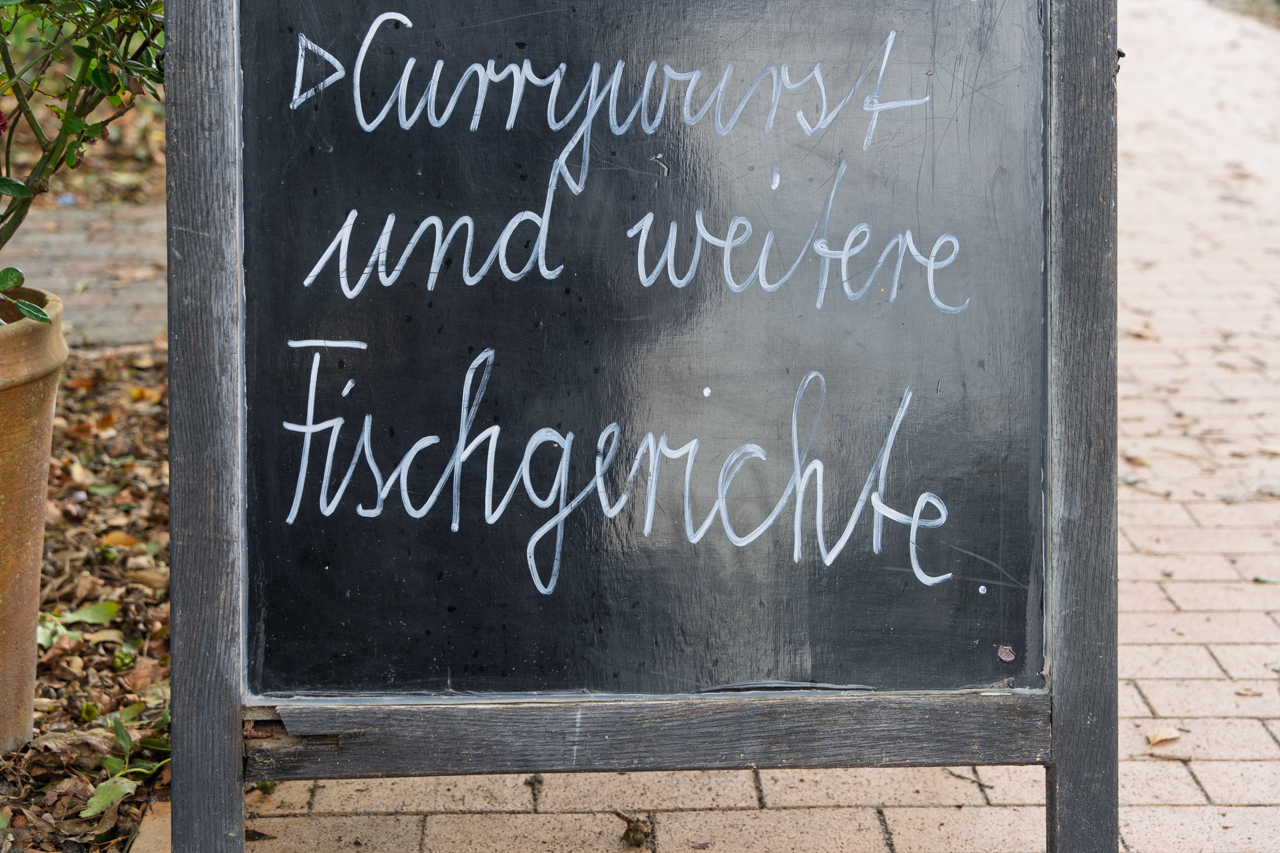 ▷ Currywurst
und weitere
Fischgerichte.